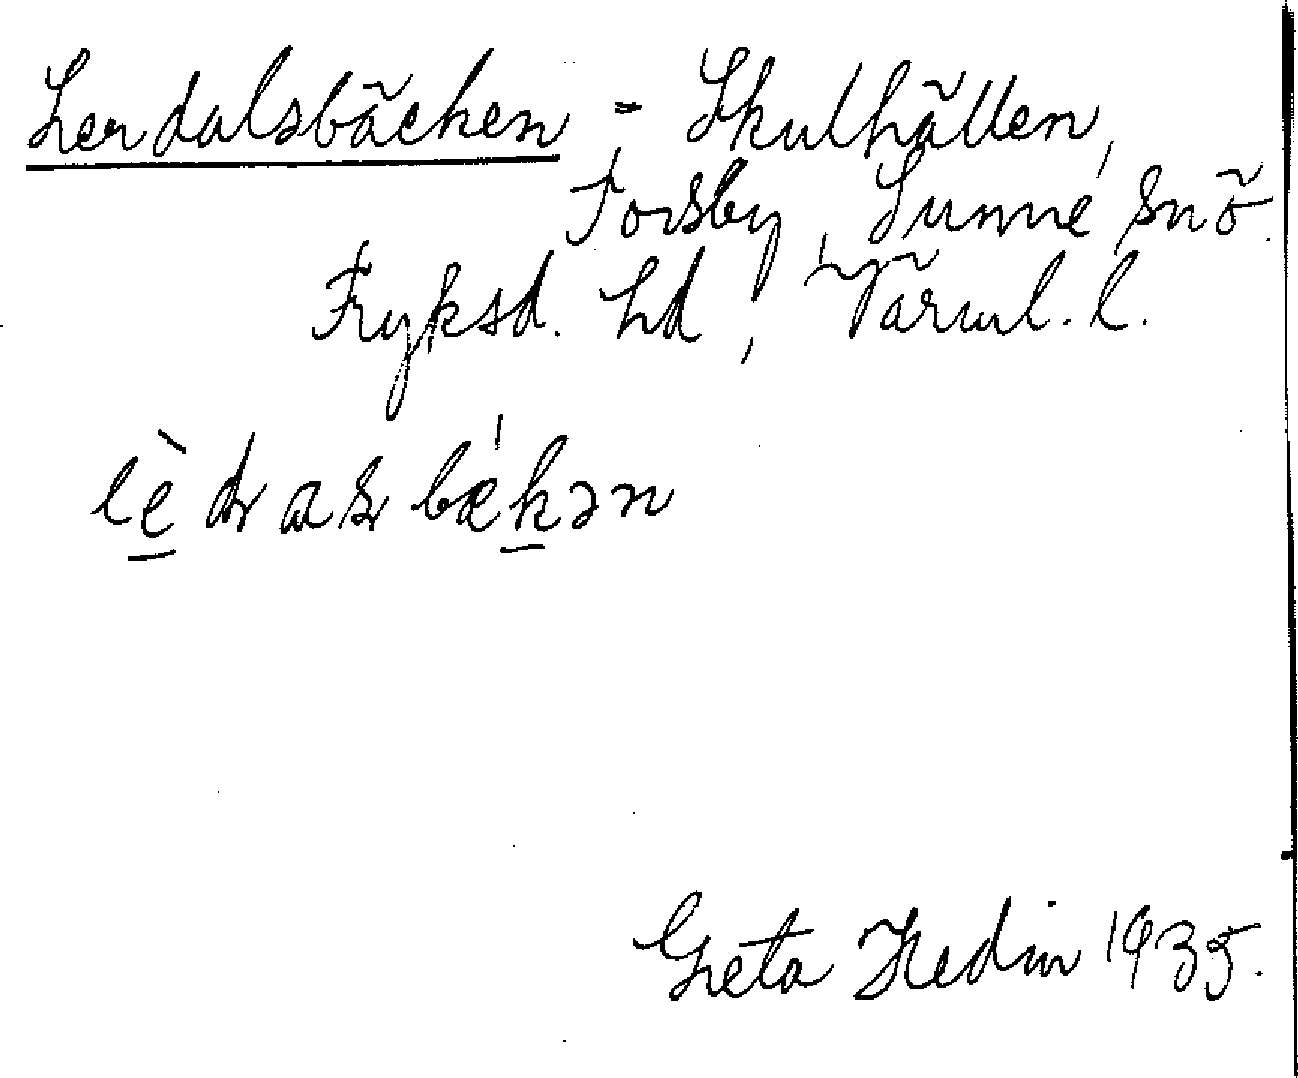 Lerdalsbäcken = Skulhällen,
Forsby, Sunne snö.
Fryksd. hd, Värml. l.
lèdrasbækən
Greta Hedin 1935.